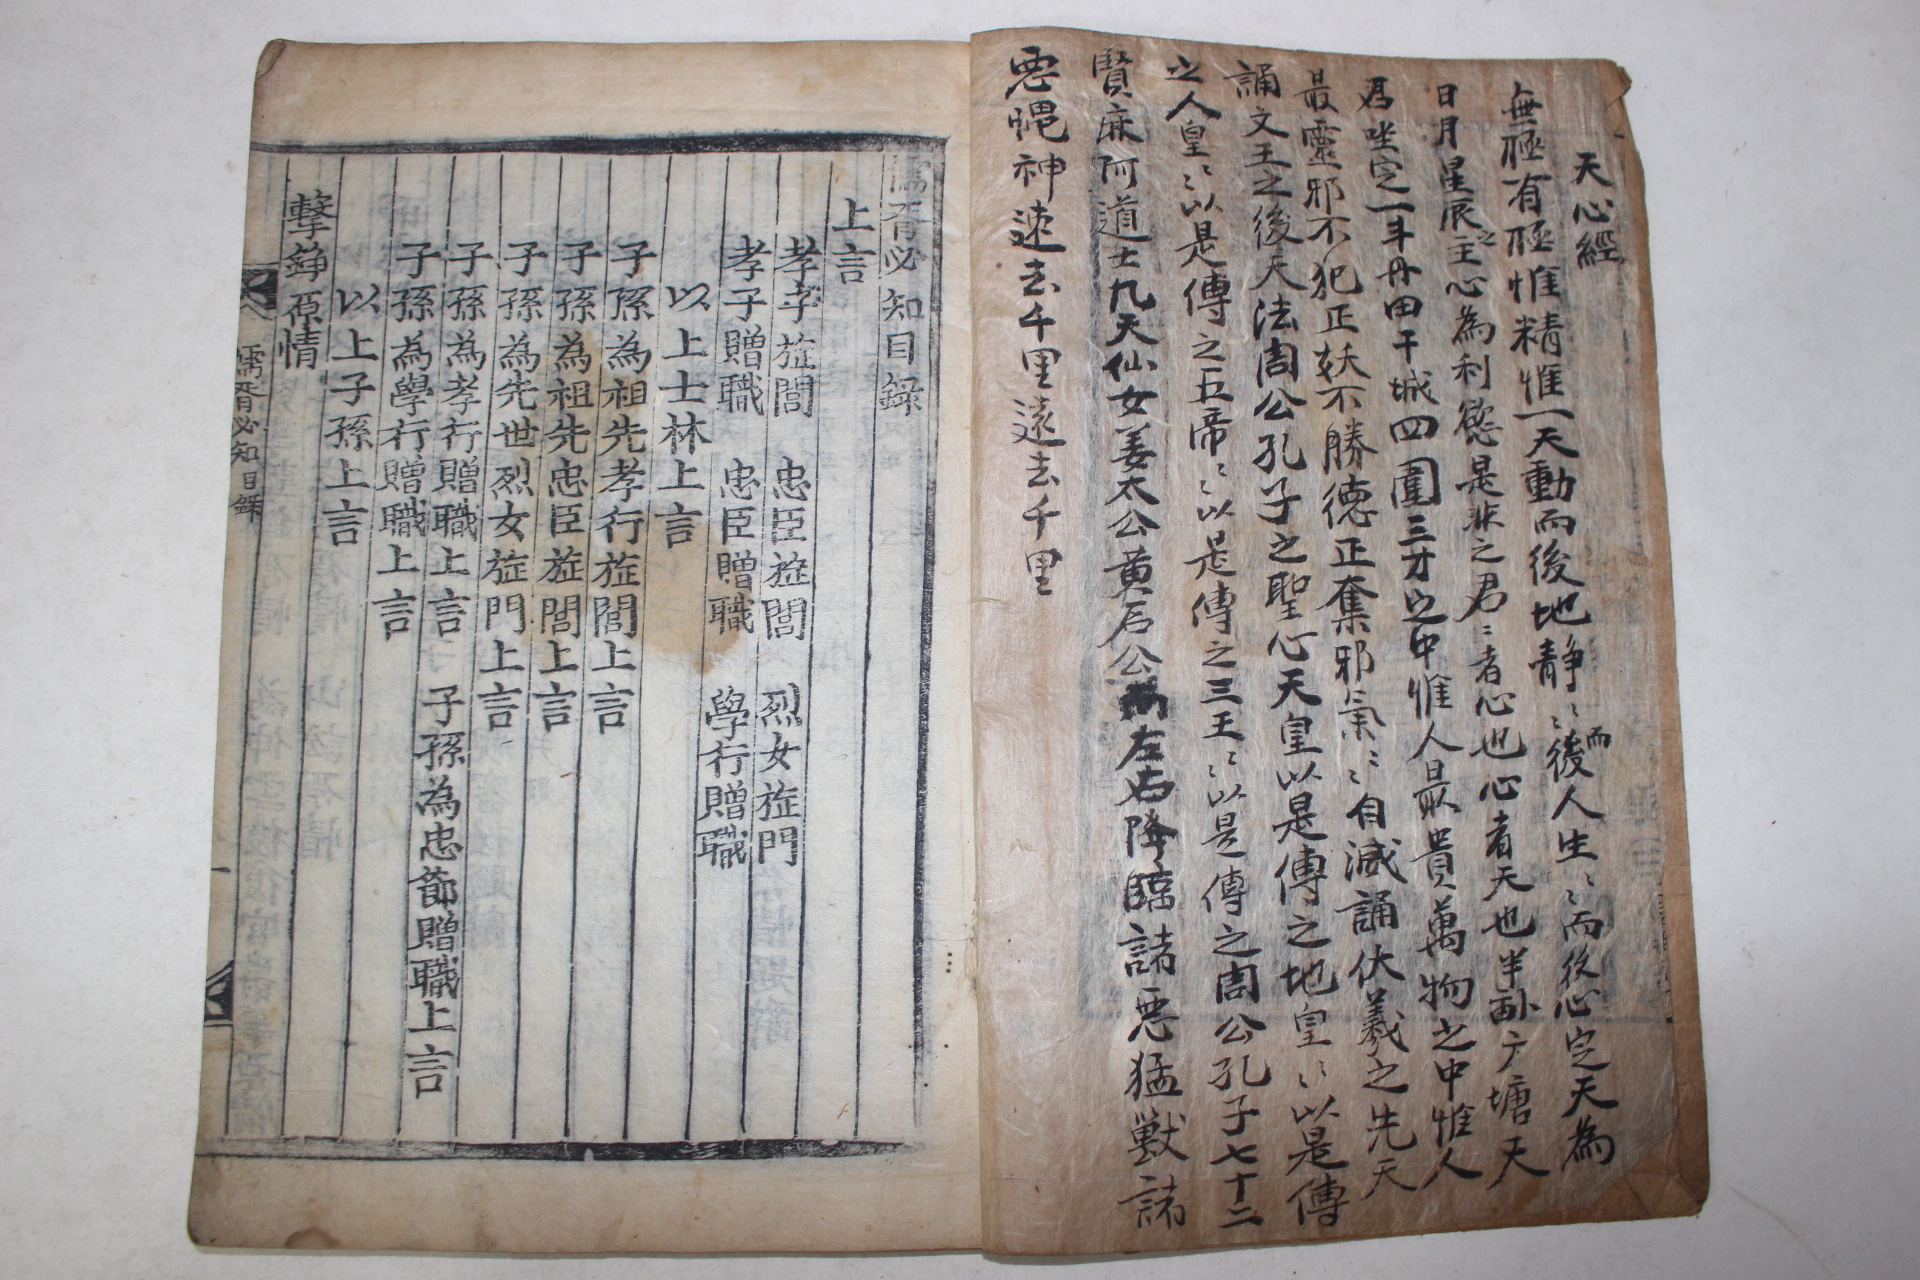 天心經
無極有極惟精惟一天動而後地静〻而後人生〻而後心定天為
日月星辰之主心為利慾是非之君〻者心也心者天也半畝方塘天
君坐定一斗丹田干城四圍三才之中惟人最貴萬物之中惟人
最靈邪不犯正妖不勝德正奪邪氣〻自滅誦伏羲之先天
誦文王之後天法周公孔子之聖心天皇以是傳之地皇〻以是傳
之人皇〻以是傳之五帝〻以是傳之三王〻以是傳之周公孔子七十二
賢麻阿道士九天仙女姜太公黃石公左右降臨諸惡猛獸諸
惡神速去千里遠去千里
儒胥必知目録
上言
孝子旌閭 忠臣旌閭 烈女旌門
孝子贈職 忠臣贈職 學行贈職
以上士林上言
子孫為祖先孝行旌閭上言
子孫為祖先忠臣旌閭上言
子孫為先世烈女旌門上言
子孫為孝行贈職上言 子孫為忠節贈職上言
子孫為學行贈職上言
以上子孫上言
擊錚原情
儒胥必知目録